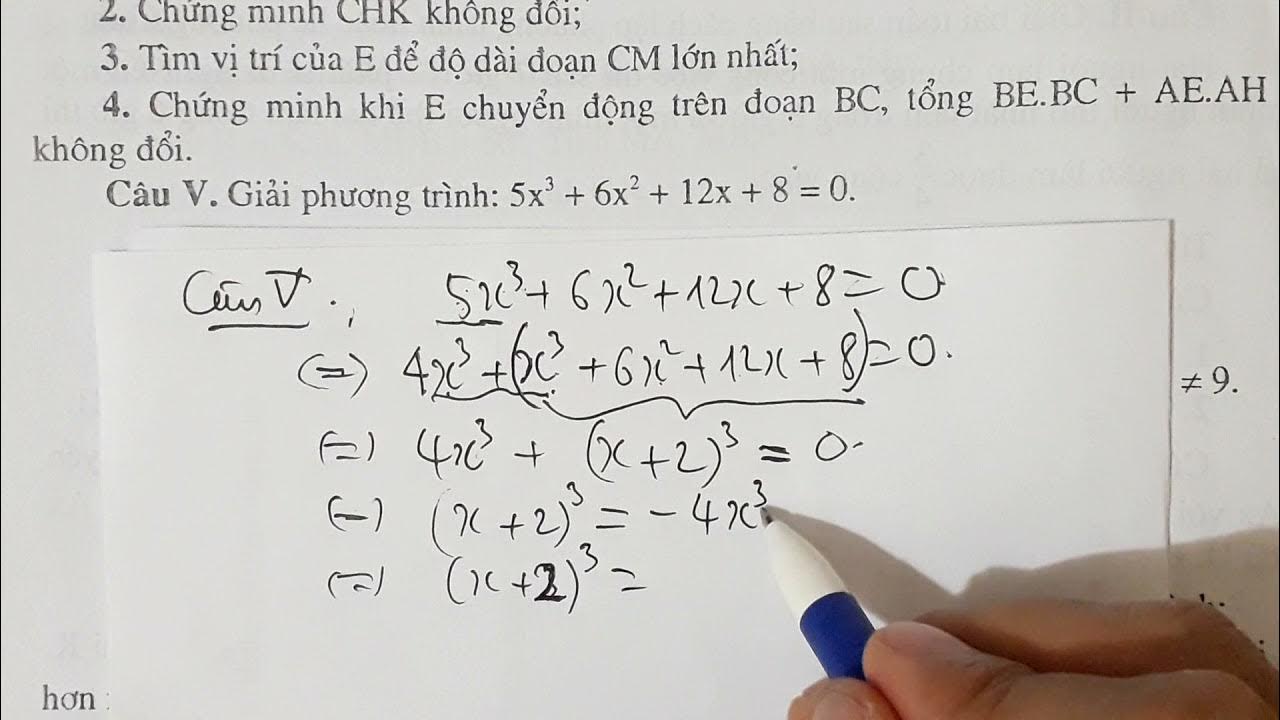 2. Chứng minh CHK không đổi;
3. Tìm vị trí của E để độ dài đoạn CM lớn nhất;
4. Chứng minh khi E chuyển động trên đoạn BC, tổng BE.BC + AE.AH
không đổi.
Câu V. Giải phương trình: 5x³ + 6x² + 12x + 8 = 0.
Câu V. 5x³ + 6x² + 12x + 8 = 0
(=) 4x³ + (x³ + 6x² + 12x + 8) = 0.
≠ 9.
(=) 4x³ + (x + 2)³ = 0.
(=) (x + 2)³ = - 4x³
(=) (x + 2)³ =
hơn